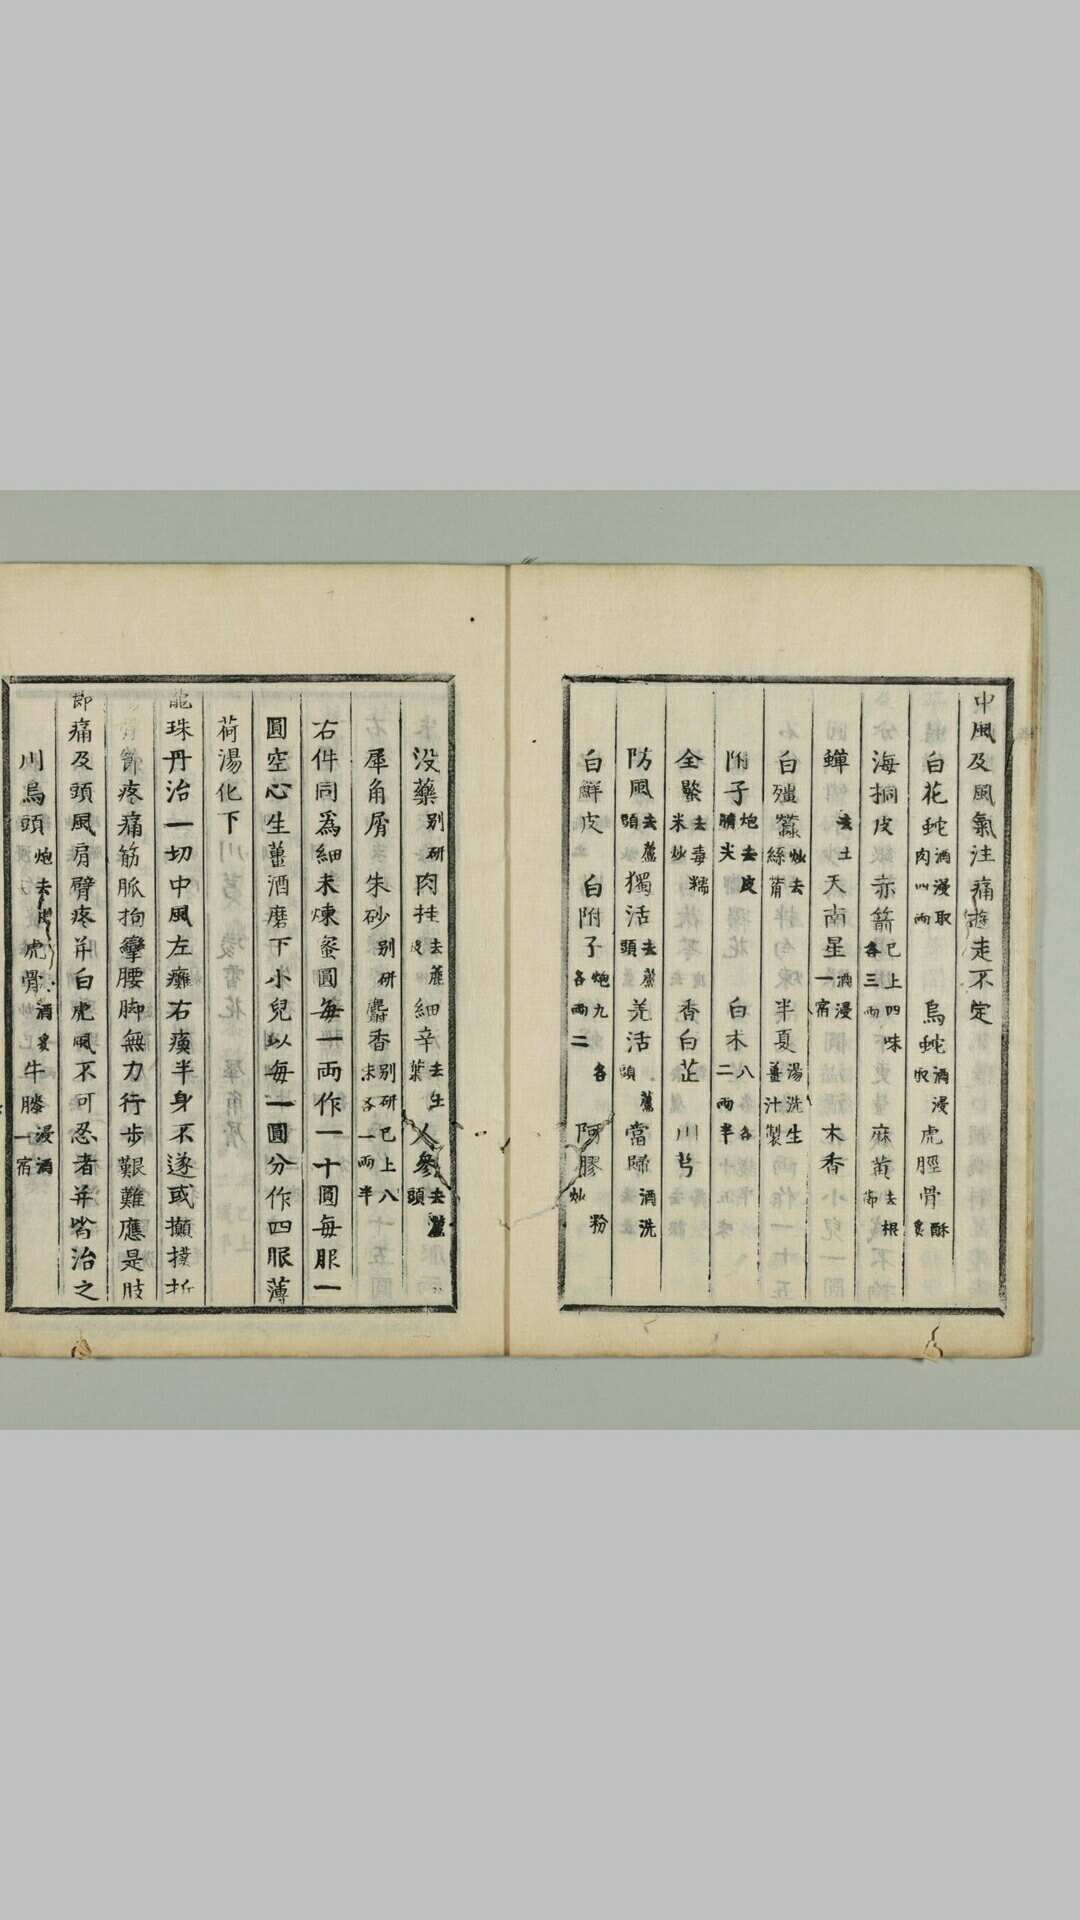 中風及風氣注痛遊走不定
白花蛇酒浸取肉四兩 烏蛇酒浸取 虎脛骨酥炙
海桐皮 赤箭已上四味各三兩 麻黄去根節
蟬去土 天南星酒浸一宿 木香
白殭蠶炒去絲 半夏湯洗生薑汁製
附子炮去皮臍尖 白术八各二兩半
全蝎去毒糯米炒 香白芷 川芎
防風去蘆頭 獨活去蘆頭 羌活蘆頭 當歸酒洗
白鮮皮 白附子炮九各二兩 阿膠粉炒
没藥别研 肉桂去麄皮 細辛去生葉 人參去蘆頭
犀角屑 朱砂别研 麝香别研已上八味各一兩半
右件同為細末煉蜜圓每一兩作一十圓每服一
圓空心生薑酒磨下小兒以每一圓分作四服薄
荷湯化下
龍珠丹治一切中風左癱右瘓半身不遂或攧撲折
骨節疼痛筋脈拘攣腰脚無力行步艱難應是肢
節痛及頭風肩臂疼并白虎風不可忍者并皆治之
川烏頭炮去皮 虎骨酒炙 牛膝浸酒一宿